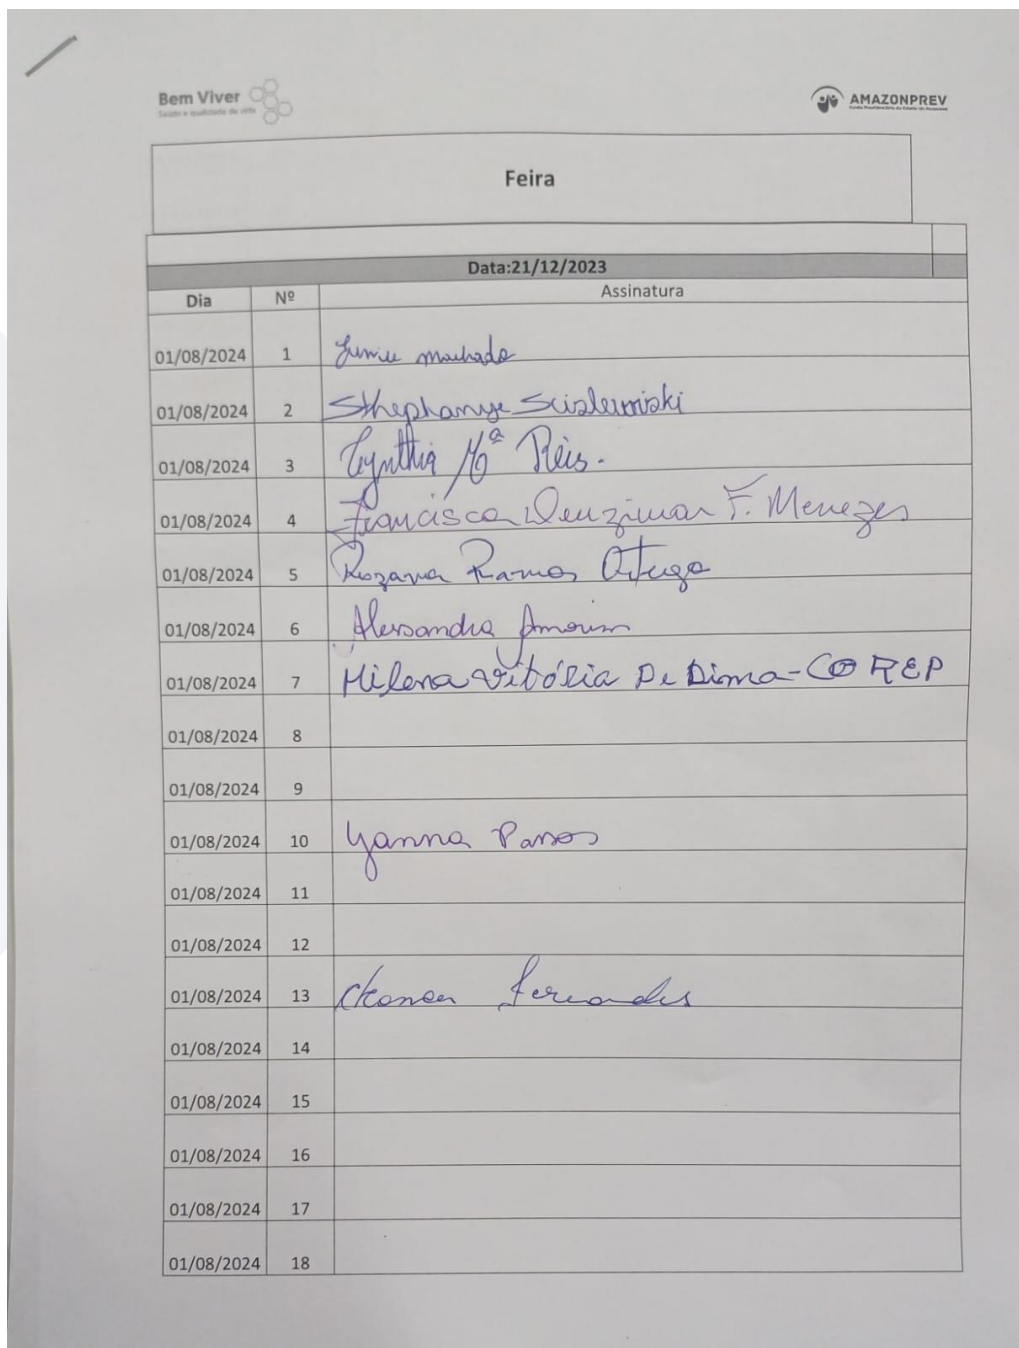 Bem Viver
Saúde e qualidade de vida
AMAZONPREV
Feira
Data:21/12/2023
Dia Nº Assinatura
01/08/2024 1 Machado
01/08/2024 2 Sthephanye
01/08/2024 3 Cynthia Mª Reis.
01/08/2024 4 Francisca Deuzimar F. Menezes
01/08/2024 5 Rozana Ramos Ortega
01/08/2024 6 Alessandra Amorim
01/08/2024 7 Milena Vitólia De Lima-COREP
01/08/2024 8
01/08/2024 9
01/08/2024 10 Yanna Passos
01/08/2024 11
01/08/2024 12
01/08/2024 13 Fernandes
01/08/2024 14
01/08/2024 15
01/08/2024 16
01/08/2024 17
01/08/2024 18